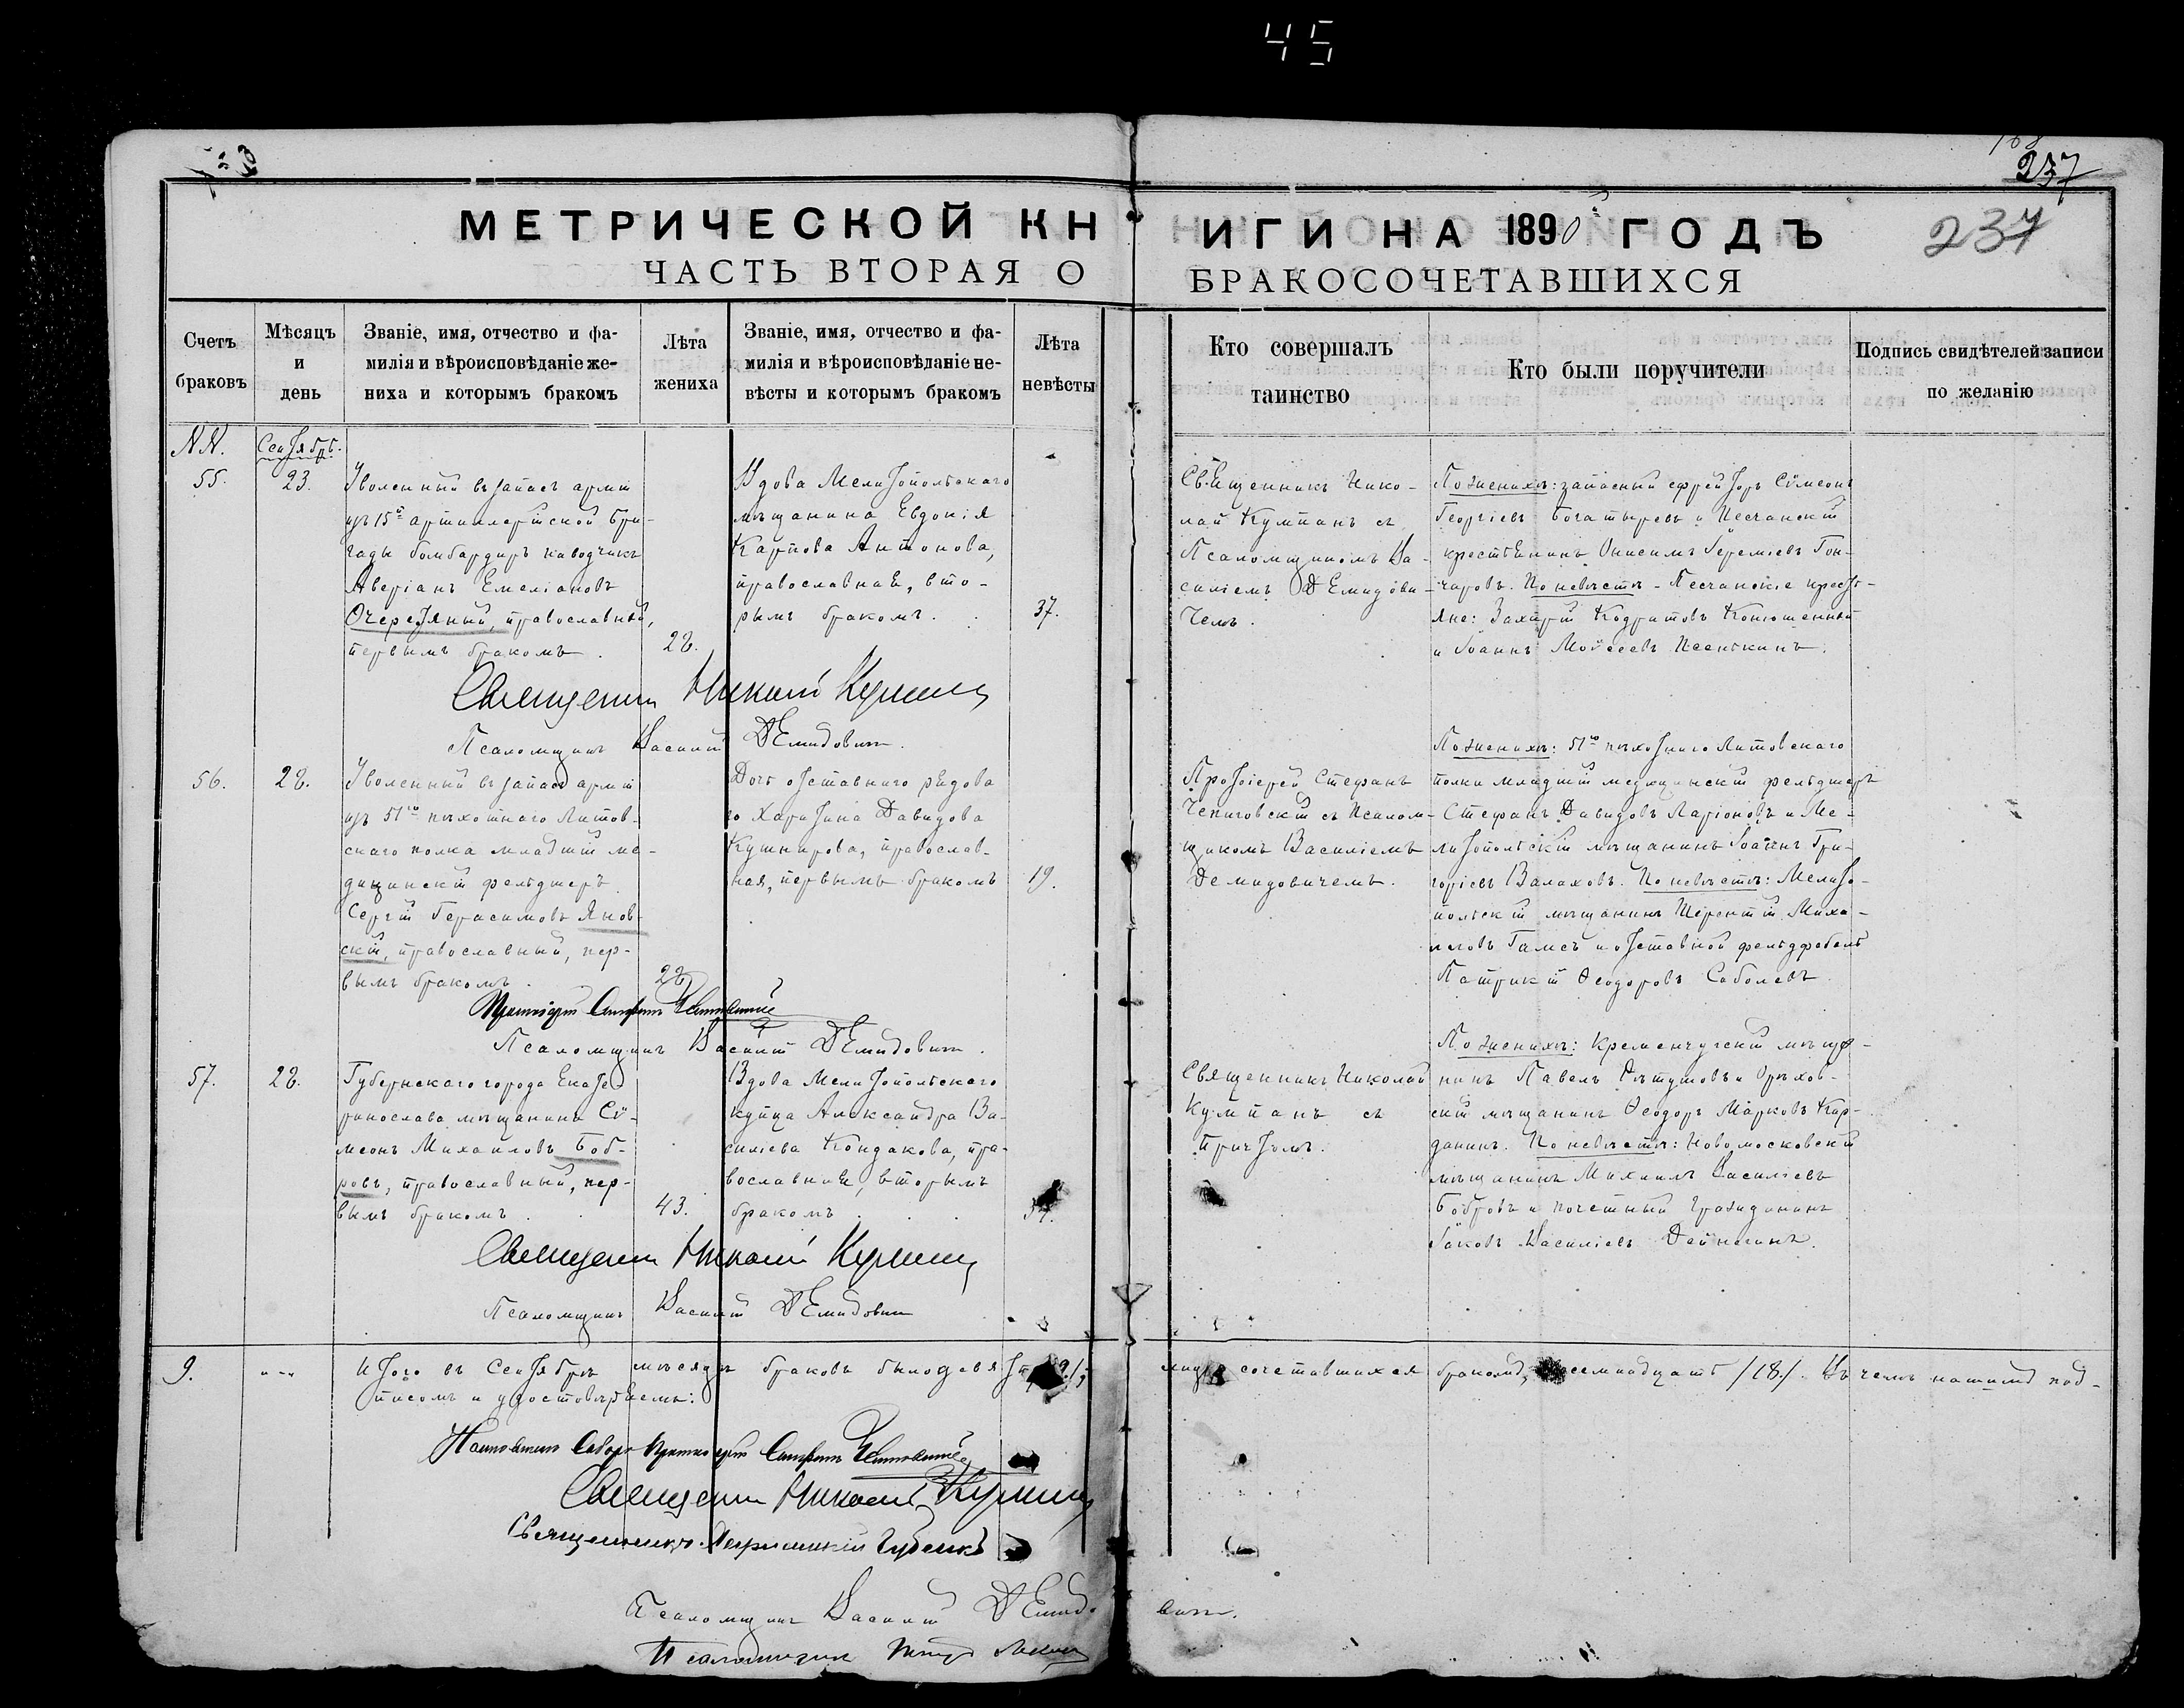 45
237
МЕТРИЧЕСКОЙ КНИГИ НА 1890 ГОДЪ
237
ЧАСТЬ ВТОРАЯ О БРАКОСОЧЕТАВШИХСЯ
Счетъ
браковъ
Мѣсяцъ
и
день
Званіе, имя, отчество и фа-
милія и вѣроисповѣданіе же-
ниха и которымъ бракомъ
Лѣта
жениха
Званіе, имя, отчество и фа-
милія и вѣроисповѣданіе не-
вѣсты и которымъ бракомъ
Лѣта
невѣсты
Кто совершалъ
таинство
Кто были поручители
Подпись свидѣтелей записи
по желанію
NN.
Сентябрь.
55.
23.
Уволенный въ запасъ арміи
изъ 15й артиллерійской бри-
гады бомбардиръ наводчикъ
Аверіанъ Емеліановъ
Очередный, православный,
первымъ бракомъ.
28.
Вдова Мелитопольскаго
мѣщанина Евдокія
Карпова Антонова,
православная, вто-
рымъ бракомъ.
37.
Священникъ Нико-
лай Кумпанъ съ
Псаломщикомъ Ва-
силіемъ Демидови-
чемъ.
По женихѣ: запасный ефрейторъ Сѵмеонъ
Георгіевъ Богатыревъ и Песчанскій
крестьянинъ Онисимъ Іереміевъ Гон-
чаровъ. По невѣстѣ - Песчанскіе кресть-
яне: Захарій Кодратовъ Конюшенный
и Іоаннъ Моѵсеевъ
Священникъ Николай Кумпанъ
Псаломщикъ Василій Демидовичъ.
56.
28.
Уволенный въ запасъ арміи
изъ 51го пѣхотнаго Литов-
скаго полка младшій ме-
дицинскій фельдшеръ
Сергій Герасимовъ Янов-
скій, православный, пер-
вымъ бракомъ.
28
Дочь отставнаго рядова
го Харитина Давидова
Кушнирова, православ-
ная, первымъ бракомъ
19.
Протоіерей Стефанъ
съ Псалом-
щикомъ Василіемъ
Демидовичемъ.
По женихѣ: 51го пѣхотнаго Литовскаго
полка младшій медицинскій фельдшеръ
Стефанъ Давидовъ Ларіоновъ и Ме-
литопольскій мѣщанинъ Іоаннъ Гри-
горіевъ Валаховъ. По невѣстѣ: Мелито-
польскій мѣщанинъ Терентій Миха-
иловъ и отставной фельдфебель
Патрикій Ѳеодоровъ Соболевъ.
Протоіерей Стефанъ
Псаломщикъ Василій Демидовичъ.
57.
28.
Губернскаго города Екате-
ринослава мѣщанинъ Сѵ-
меонъ Михаиловъ Боб-
ровъ, православный, пер-
вымъ бракомъ.
43.
Вдова Мелитопольскаго
купца Александра Ва-
силіева Кондакова, пра-
вославная, вторымъ
бракомъ.
Священникъ Николай
Кумпанъ съ
Причтомъ.
По женихѣ: Кременчугскій мѣща-
нинъ Павелъ и Орѣхов-
скій мѣщанинъ Ѳеодоръ Марковъ Кар-
данинъ. По невѣстѣ: Новомосковскій
мѣщанинъ Михаилъ Василіевъ
Бобровъ и почетный гражданинъ
Іаковъ Василіевъ
Священникъ Николай Кумпанъ
Псаломщикъ Василій Демидовичъ
9.
Итого въ Сентябрѣ мѣсяцѣ браковъ было девять /9/, лицъ сочетавшихся бракомъ, восемнадцать /18/. Въ чемъ нашимъ под-
писомъ и удостовѣряемъ:
Настоятель Собора Протоіерей Стефанъ
Священникъ Николай Кумпанъ
Священникъ
Псаломщикъ Василій Демидовичъ.
Псаломщикъ